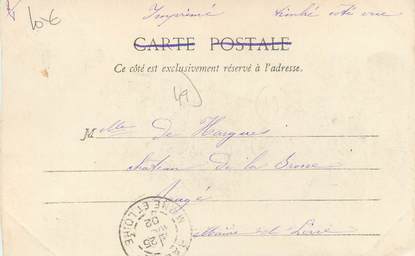 10€
Imprimé timbré côté vue
CARTE POSTALE
Ce côté est exclusivement réservé à l'adresse.
49
Mlle De Hargues
château de la
Maine et Loire
MAINE ET LOIRE
25
02